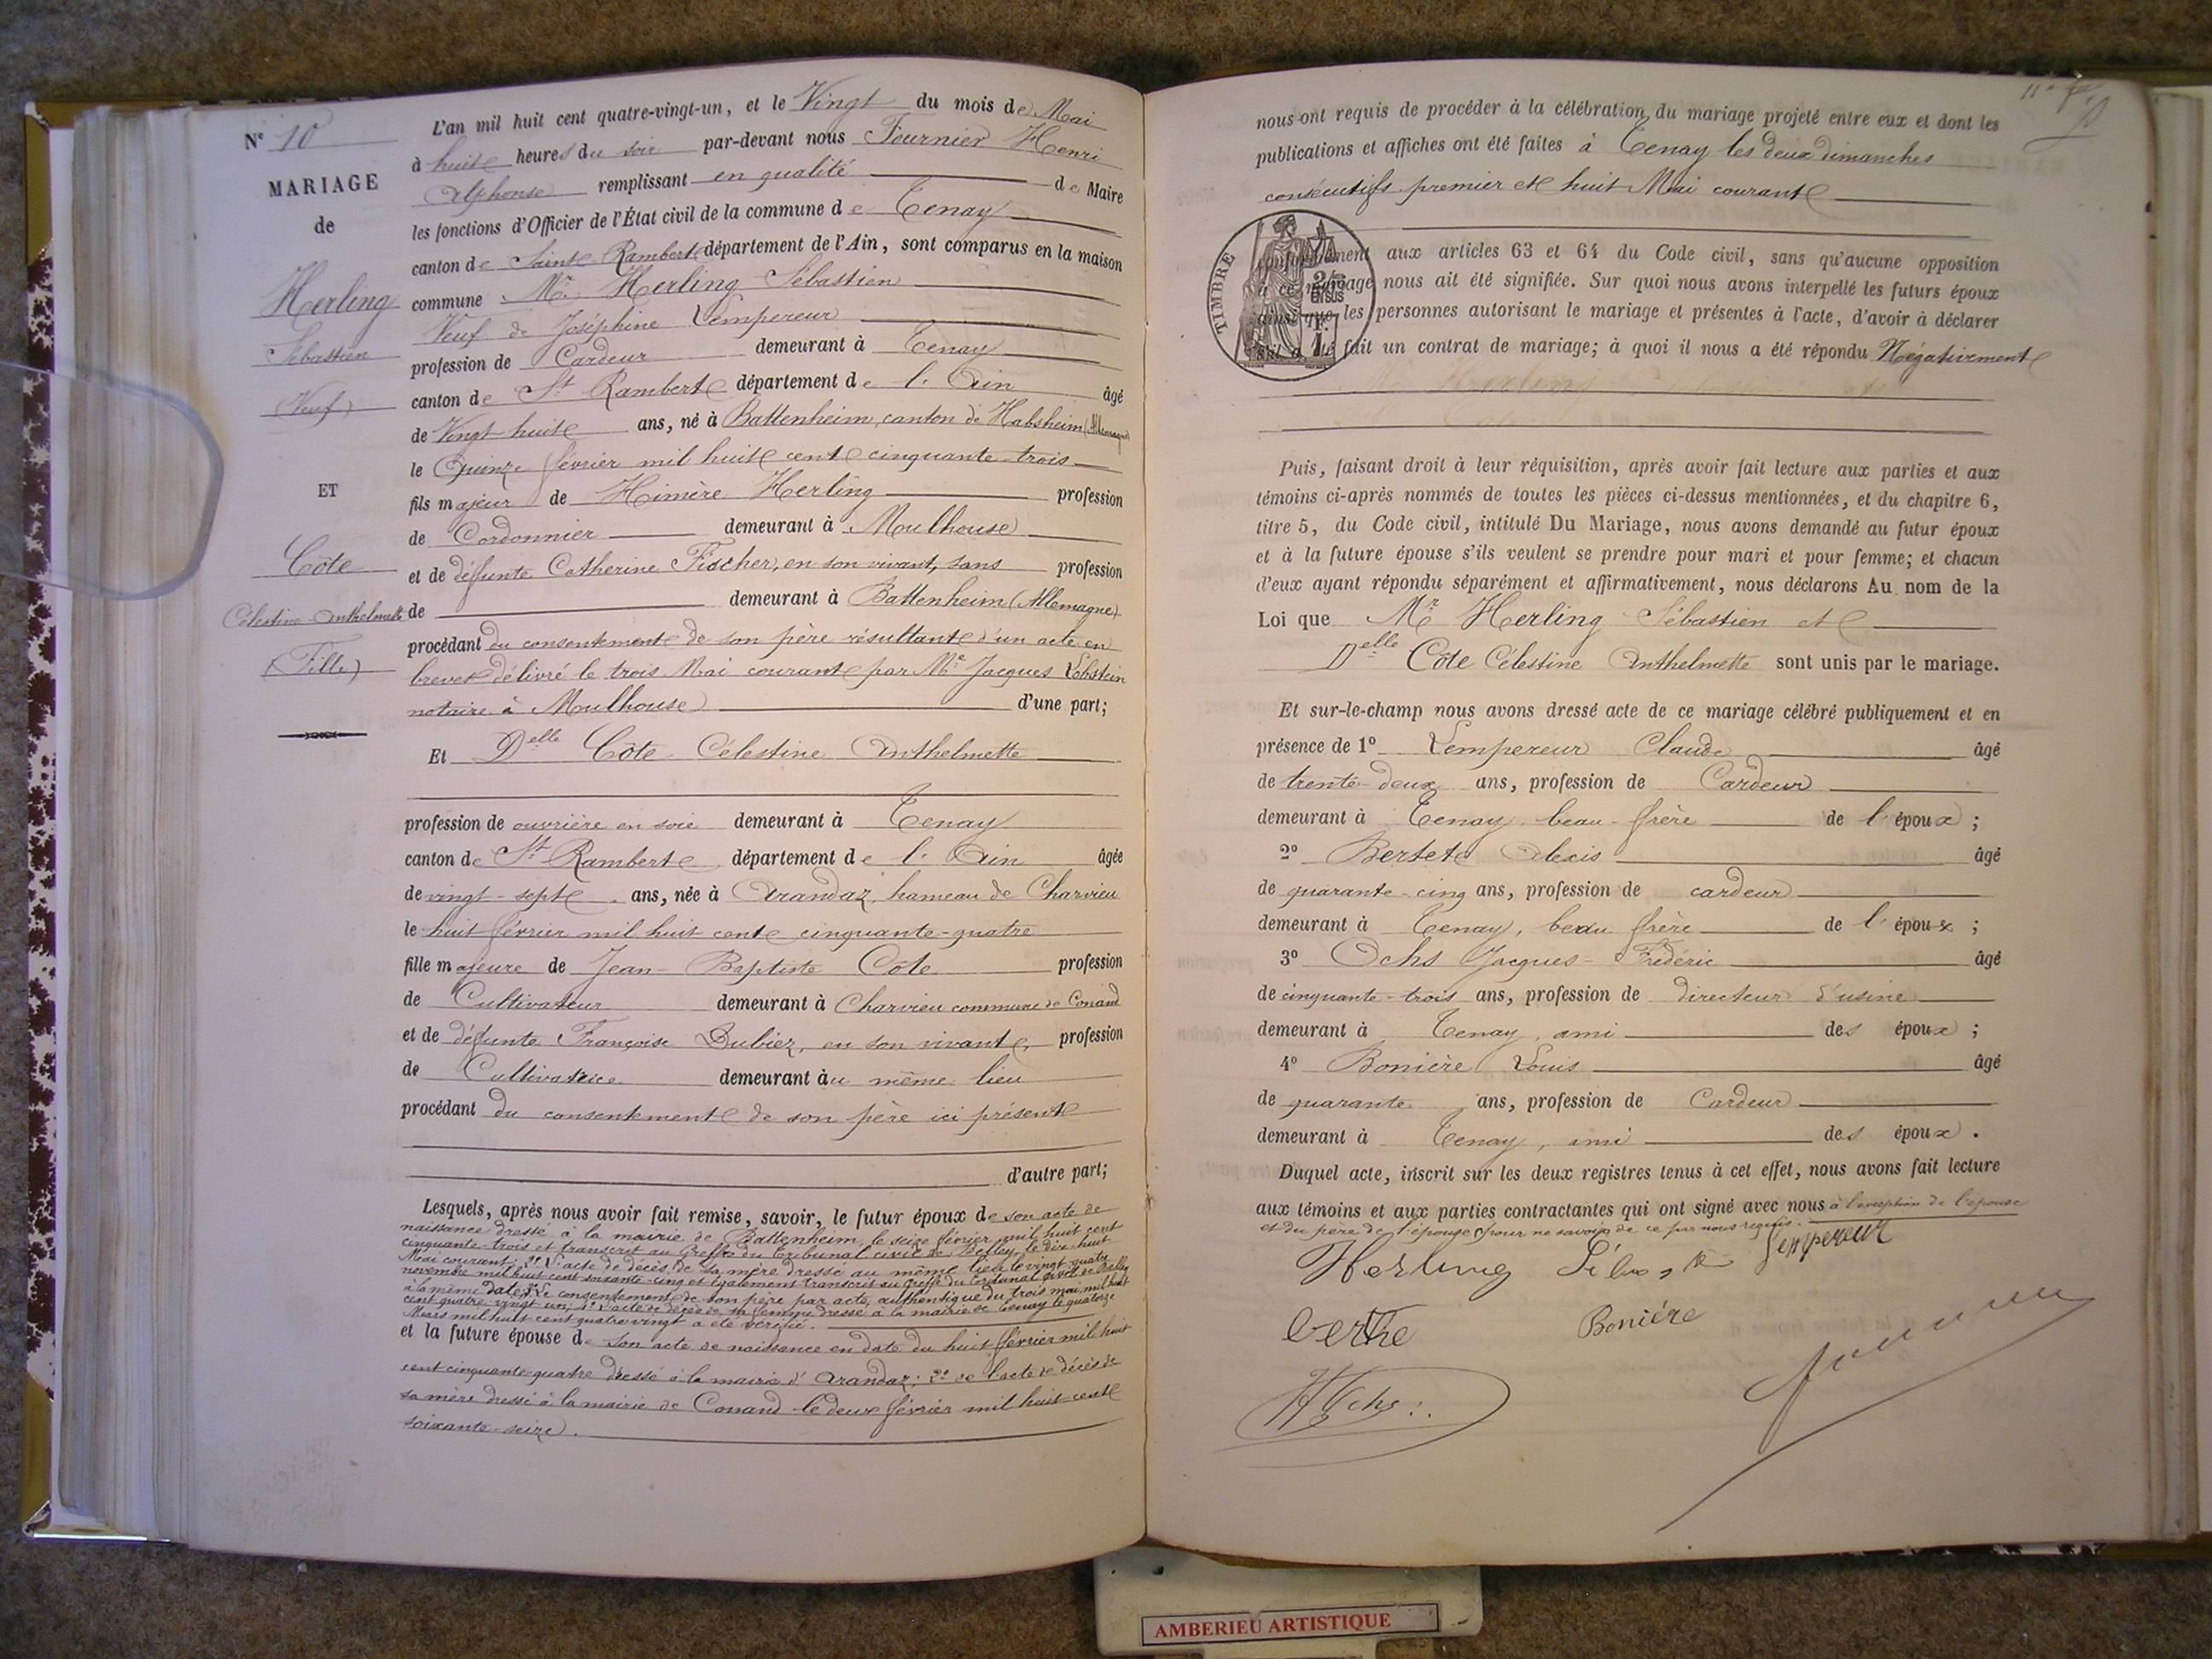 N° 10
MARIAGE
de
Herling
Sébastien
(Veuf)
ET
Côte
Célestine Anthelmette
(Fille)
L'an mil huit cent quatre-vingt-un, et le Vingt du mois de Mai
à huit heures du soir par-devant nous Fournier Henri
Alphonse remplissant en qualité de Maire
les fonctions d'Officier de l'État civil de la commune de Tenay
canton de Saint Rambert département de l'Ain, sont comparus en la maison
commune Mr. Herling Sébastien
Veuf de Joséphine Lempereur
profession de Cardeur demeurant à Tenay
canton de St Rambert département de l'Ain âgé
de Vingt huit ans, né à Battenheim, canton de Habsheim (Allemagne)
le Quinze février mil huit cent cinquante-trois
fils majeur de Himère Herling profession
de Cordonnier demeurant à Mulhouse
et de défunte Catherine Fischer, en son vivant, sans profession
de demeurant à Battenheim (Allemagne)
procédant du consentement de son père résultant d'un acte en
brevet délivré le trois Mai courant par Me Jacques Lobstein
notaire à Mulhouse d'une part;
Et Delle Côte Célestine Anthelmette
profession de ouvrière en soie demeurant à Tenay
canton de St Rambert département de l'Ain âgée
de vingt-sept ans, née à Arandaz, hameau de Charvieu
le huit février mil huit cent cinquante-quatre
fille majeure de Jean-Baptiste Côte profession
de Cultivateur demeurant à Charvieu commune de Conand
et de défunte Françoise Dubiez, en son vivant, profession
de Cultivatrice demeurant au même lieu
procédant du consentement de son père ici présent
d'autre part;
Lesquels, après nous avoir fait remise, savoir, le futur époux de son acte de
naissance dressé à la mairie de Battenheim, le seize février mil huit cent
cinquante-trois et transcrit au Greffe du Tribunal civil de Belley le dix-huit
Mai courant; 2° L'acte de décès de sa mère dressé au même lieu le vingt quatre
novembre mil huit cent soixante-cinq et également transcrit au Greffe du Tribunal civil de Belley
à la même date; 3° Le consentement de son père par acte authentique du trois mai mil huit
cent quatre vingt un; 4° L'acte de décès de sa femme dressé à la mairie de Tenay le quatorze
Mars mil huit cent quatre vingt a été vérifié.
et la future épouse de son acte de naissance en date du huit février mil huit
cent cinquante-quatre dressé à la mairie d'Arandaz; 2° de l'acte de décès de
sa mère dressé à la mairie de Conand le deux février mil huit cent
soixante-seize.
nous ont requis de procéder à la célébration du mariage projeté entre eux et dont les
publications et affiches ont été faites à Tenay les deux dimanches
consécutifs premier et huit Mai courant
TIMBRE
conformément aux articles 63 et 64 du Code civil, sans qu'aucune opposition
à ce mariage nous ait été signifiée. Sur quoi nous avons interpellé les futurs époux
ainsi que les personnes autorisant le mariage et présentes à l'acte, d'avoir à déclarer
s'il a été fait un contrat de mariage; à quoi il nous a été répondu Négativement
Puis, faisant droit à leur réquisition, après avoir fait lecture aux parties et aux
témoins ci-après nommés de toutes les pièces ci-dessus mentionnées, et du chapitre 6,
titre 5, du Code civil, intitulé Du Mariage, nous avons demandé au futur époux
et à la future épouse s'ils veulent se prendre pour mari et pour femme; et chacun
d'eux ayant répondu séparément et affirmativement, nous déclarons Au nom de la
Loi que Mr Herling Sébastien et
Delle Côte Célestine Anthelmette sont unis par le mariage.
Et sur-le-champ nous avons dressé acte de ce mariage célébré publiquement et en
présence de 1° Lempereur Claude âgé
de trente-deux ans, profession de Cardeur
demeurant à Tenay, beau-frère de l'époux;
2° Bertet Alexis âgé
de quarante-cinq ans, profession de cardeur
demeurant à Tenay, beau frère de l'époux;
3° Ochs Jacques-Frédéric âgé
de cinquante-trois ans, profession de directeur d'usine
demeurant à Tenay, ami des époux;
4° Bonière Louis âgé
de quarante ans, profession de Cardeur
demeurant à Tenay, ami des époux.
Duquel acte, inscrit sur les deux registres tenus à cet effet, nous avons fait lecture
aux témoins et aux parties contractantes qui ont signé avec nous à l'exception de l'épouse
et du père de l'épouse pour ne savoir de ce par nous requis.
Herling Lempereur
Bonière
AMBERIEU ARTISTIQUE